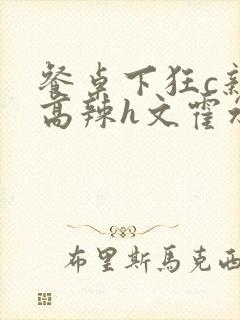 餐桌下狂c
高辣h文霍
布里斯馬克西